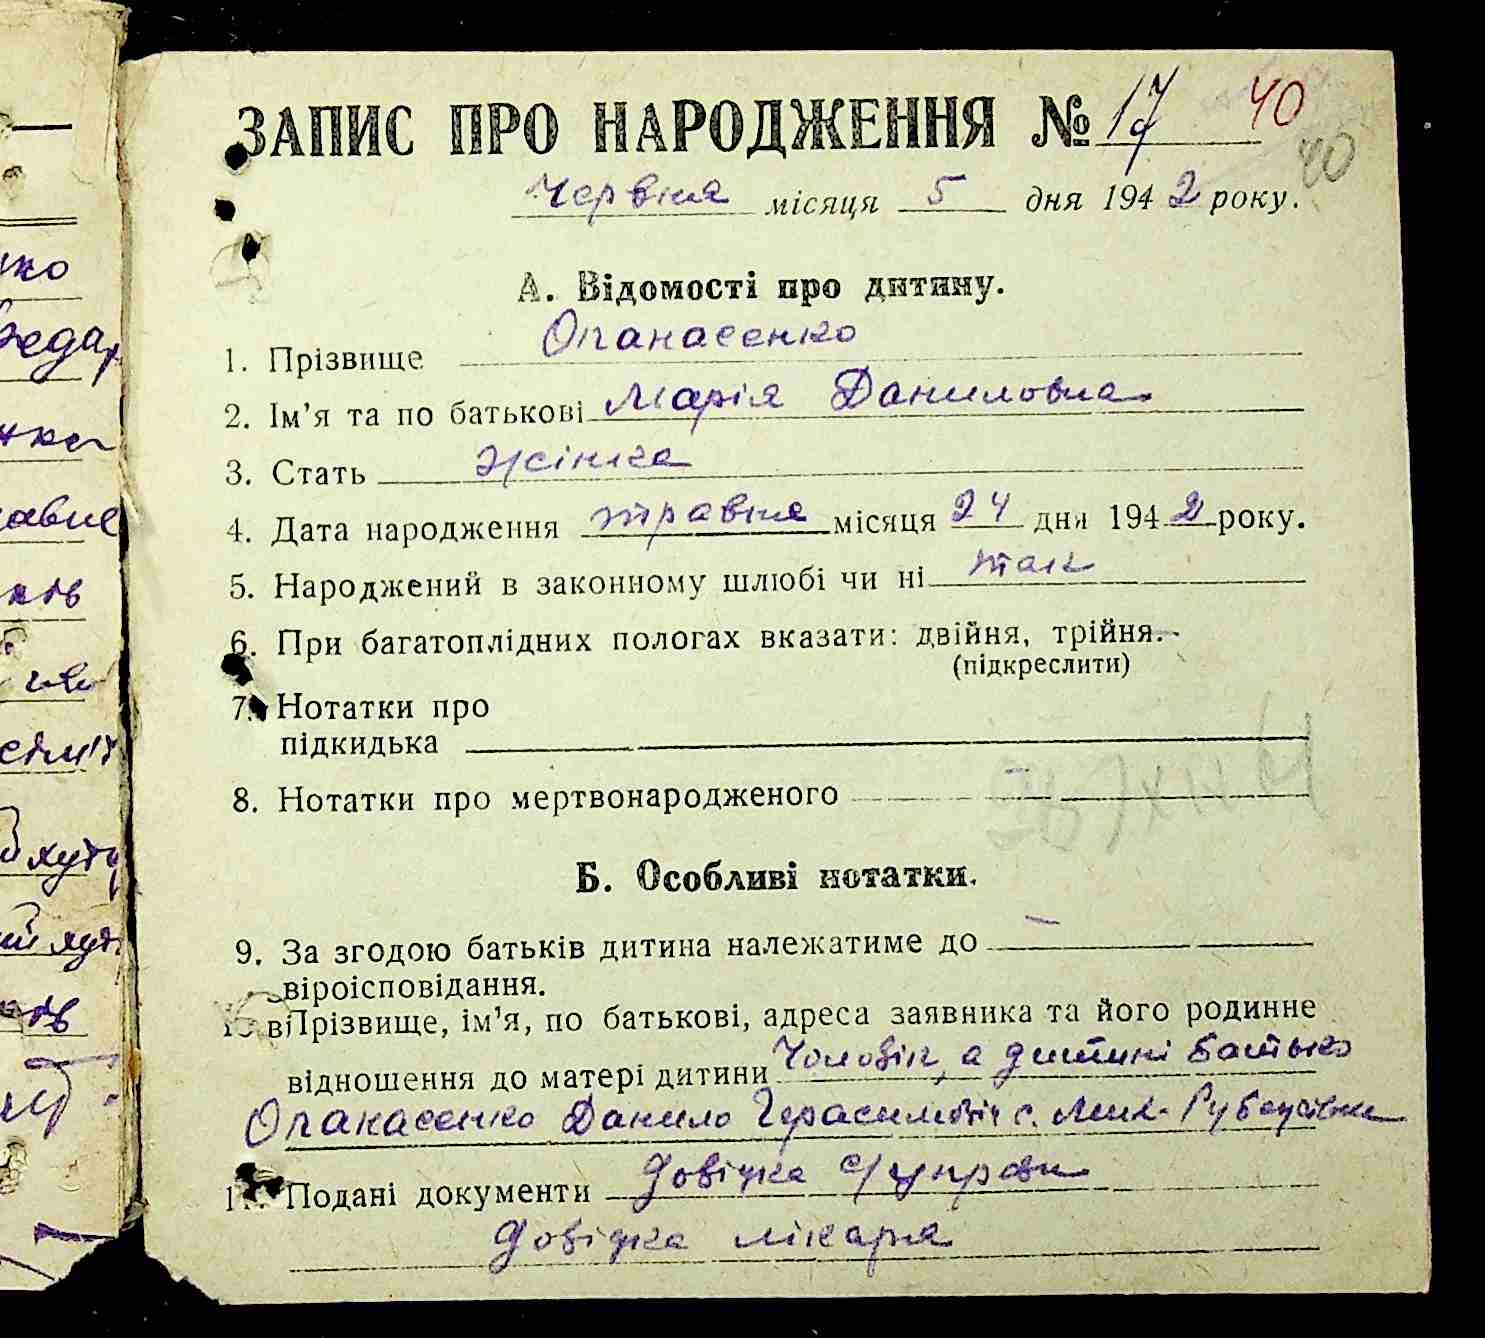 ЗАПИС ПРО НАРОДЖЕННЯ № 17 40
40
Червня місяця 5 дня 1942 року.
А. Відомості про дитину.
1. Прізвище Опанасенко
2. Ім'я та по батькові Марія Даниловна
3. Стать жінка
4. Дата народження травня місяця 24 дня 1942 року.
5. Народжений в законному шлюбі чи ні так
6. При багатоплідних пологах вказати: двійня, трійня.
(підкреслити)
7. Нотатки про
підкидька
8. Нотатки про мертвонародженого —
Б. Особливі нотатки.
9. За згодою батьків дитина належатиме до —
віроісповідання.
Прізвище, ім'я, по батькові, адреса заявника та його родинне
відношення до матері дитини Чоловік, а дитині батько
Опанасенко Данило Герасимович с.
11. Подані документи довідка с/управи
довідка лікаря